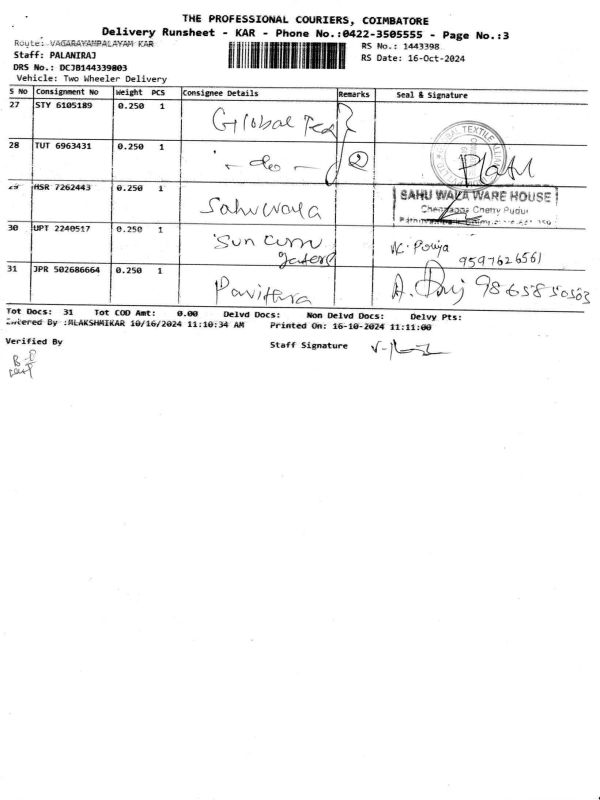 THE PROFESSIONAL COURIERS, COIMBATORE
Delivery Runsheet - KAR - Phone No.:0422-3505555 - Page No.:3
Route: VAGARAYAMPALAYAM KAR
RS No.: 1443398
Staff: PALANIRAJ
RS Date: 16-Oct-2024
DRS No.: DCJB144339803
Vehicle: Two Wheeler Delivery
S No Consignment No Weight PCS Consignee Details Remarks Seal & Signature
27 STY 6105189 0.250 1 Global Tex
28 TUT 6963431 0.250 1 - do - 2
29 HSR 7262443 0.250 1 Sahuwala
SAHU WALA WARE HOUSE
30 UPT 2240517 0.250 1 Sun
K. Pouja
9597626561
31 JPR 502686664 0.250 1 Pavithra
A. 9865850503
Tot Docs: 31 Tot COD Amt: 0.00 Delvd Docs: Non Delvd Docs: Delvy Pts:
Entered By :MLAKSHMIKAR 10/16/2024 11:10:34 AM Printed On: 16-10-2024 11:11:00
Verified By
Staff Signature